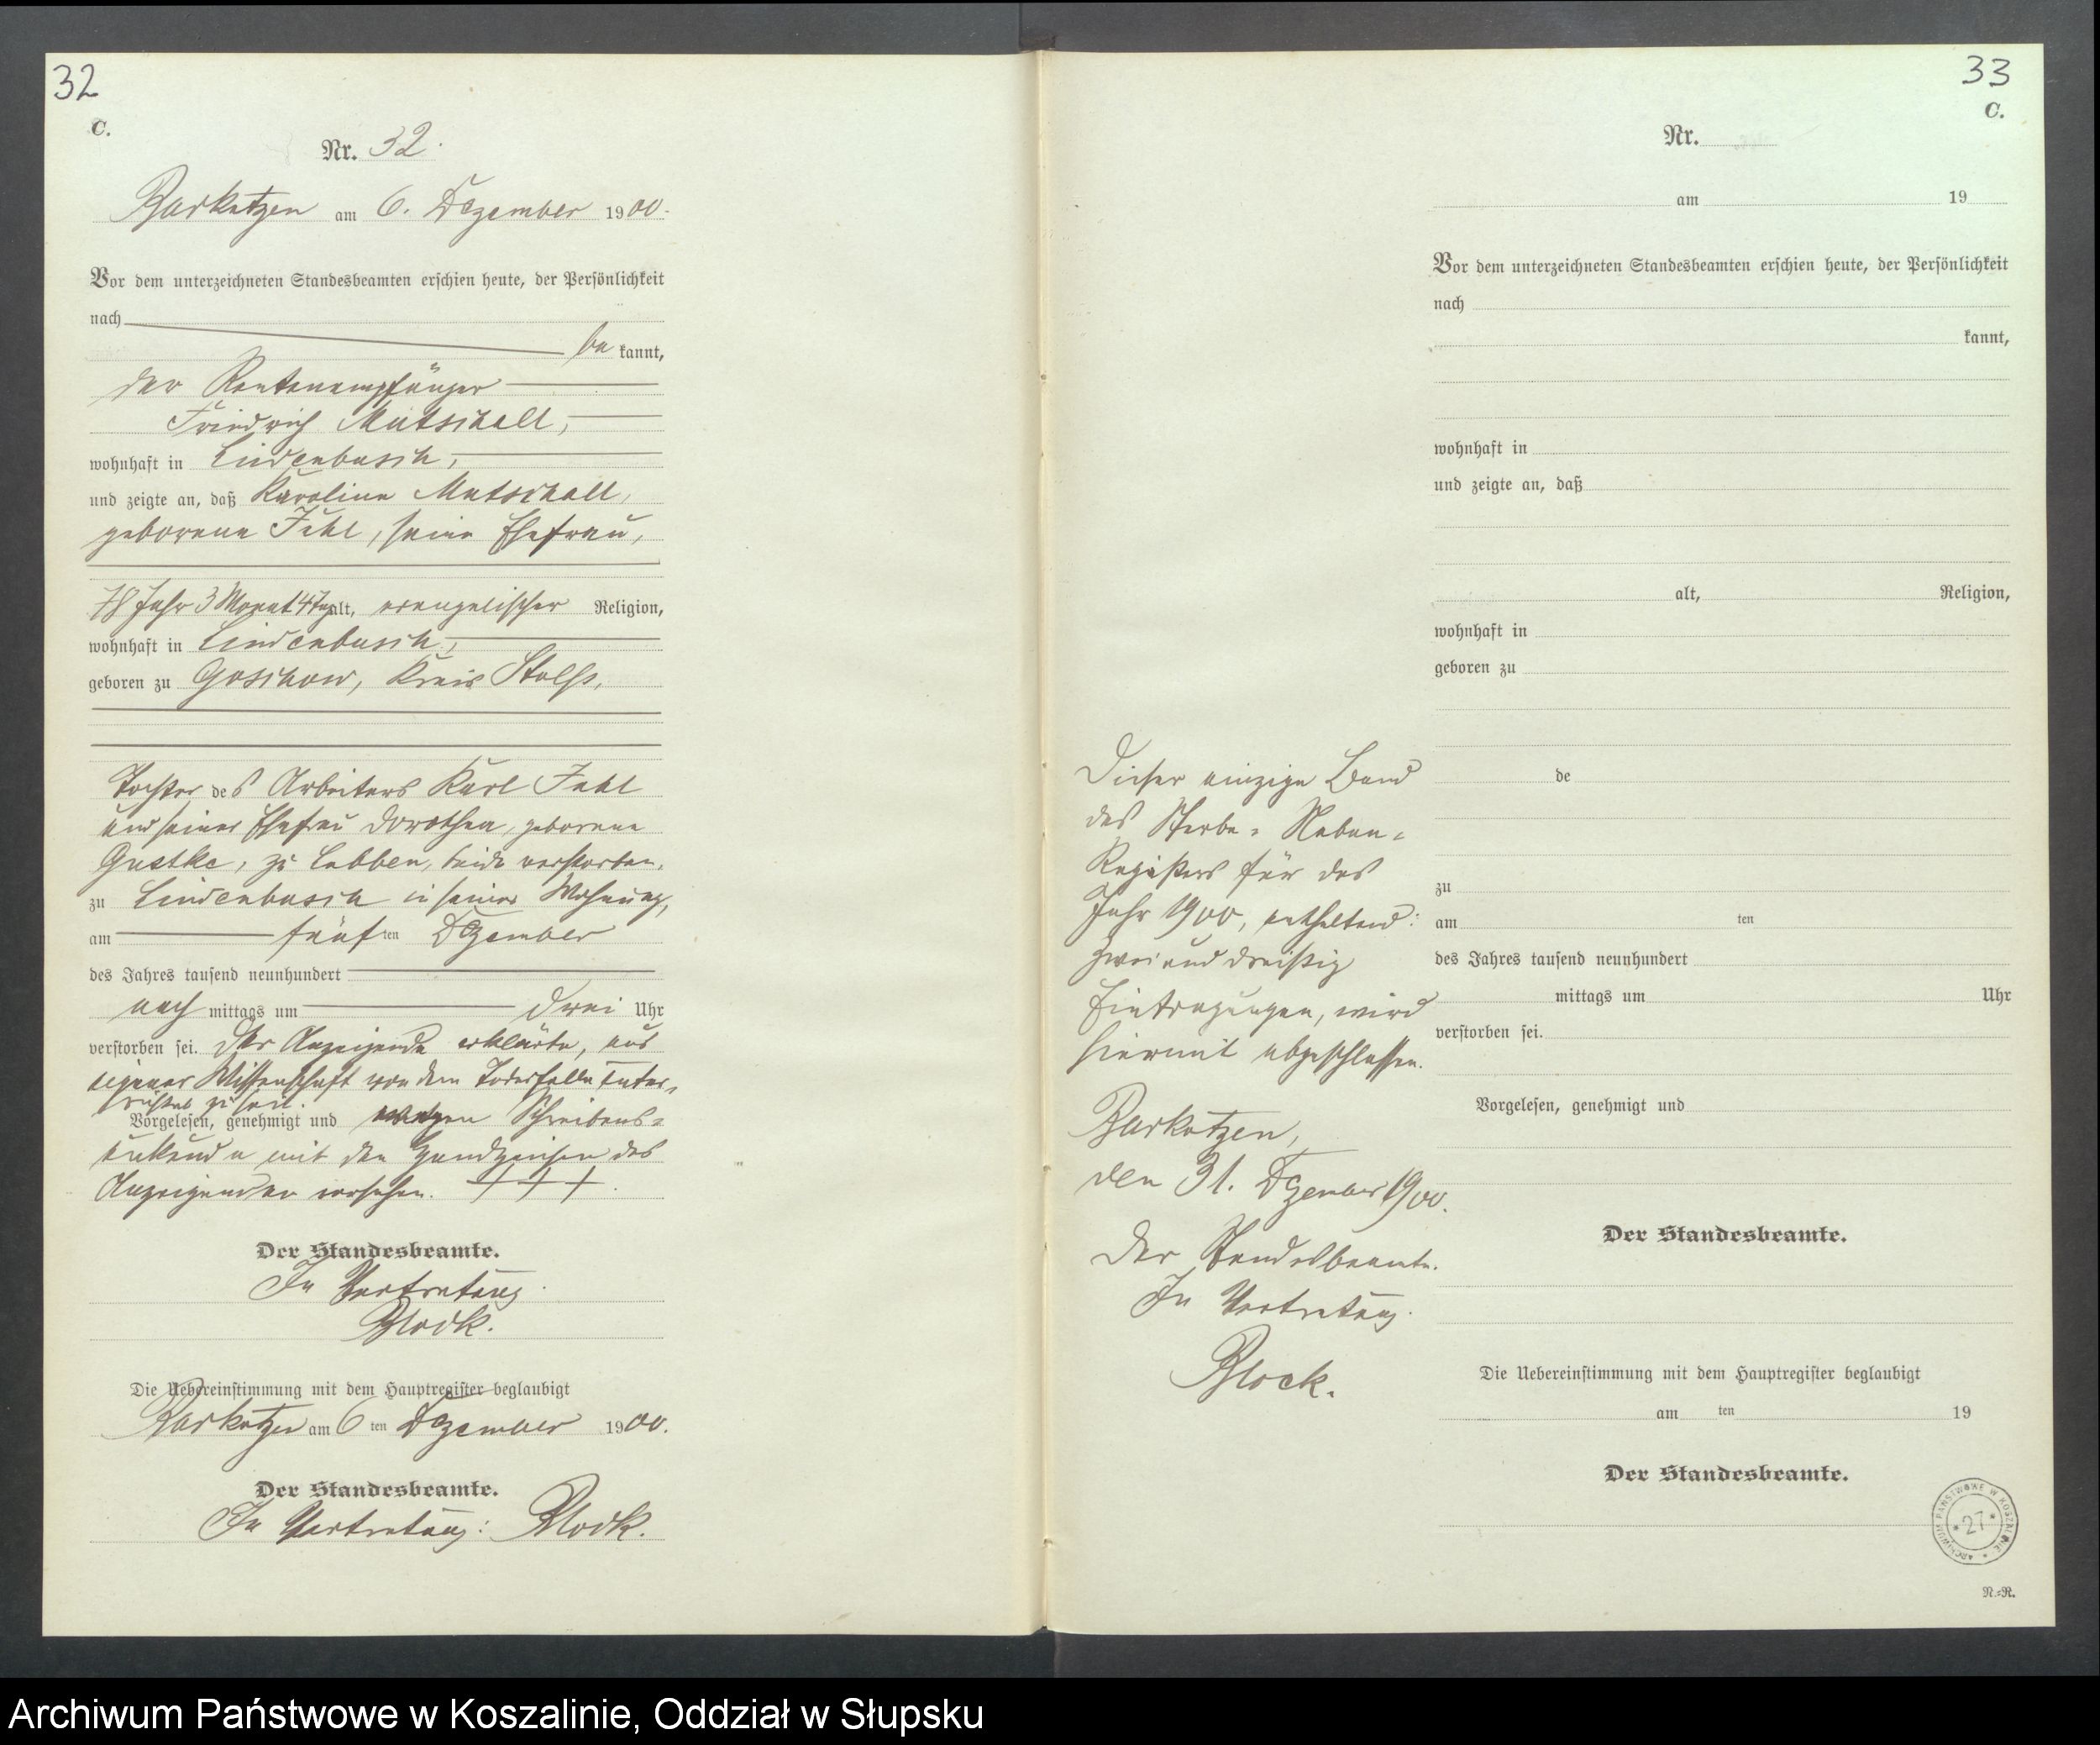 32
C.
Nr. 32.
Barkotzen am 6. Dezember 1900.
Vor dem unterzeichneten Standesbeamten erschien heute, der Persönlichkeit
nach
be kannt,
der Rentenempfänger
Friedrich Mutschall,
wohnhaft in Lindenbusch,
und zeigte an, daß Karoline Mutschall,
geborene, seine Ehefrau,
78 Jahr 3 Monat 4 Tag alt, evangelischer Religion,
wohnhaft in Lindenbusch,
geboren zu Goschow, Kreis Stolp,
Tochter des Arbeiters Karl
und seiner Ehefrau Dorothea, geborene
Gustke, zu Labben, beide verstorben,
zu Lindenbusch in seiner Wohnung,
am fünf ten Dezember
des Jahres tausend neunhundert
nach mittags um drei Uhr
verstorben sei. Der Anzeigende erklärte, aus
eigener Wissenschaft von dem Todesfalle unter-
richtet zu sein.
Vorgelesen, genehmigt und wegen Schreibens-
unkunde mit den Handzeichen des
Anzeigenden versehen. + + +.
Der Standesbeamte.
In Vertretung.
Block.
Die Uebereinstimmung mit dem Hauptregister beglaubigt
Barkotzen am 6 ten Dezember 1900.
Der Standesbeamte.
In Vertretung: Block.
33
C.
Nr.
am 19
Vor dem unterzeichneten Standesbeamten erschien heute, der Persönlichkeit
nach
kannt,
wohnhaft in
und zeigte an, daß
alt, Religion,
wohnhaft in
geboren zu
de
zu
am ten
des Jahres tausend neunhundert
mittags um Uhr
verstorben sei.
Vorgelesen, genehmigt und
Der Standesbeamte.
Die Uebereinstimmung mit dem Hauptregister beglaubigt
am ten 19
Der Standesbeamte.
Dieser einzige Band
des Sterbe-Neben-
Registers für das
Jahr 1900, enthaltend:
zwei und dreißig
Eintragungen, wird
hiermit abgeschlossen.
Barkotzen,
den 31. Dezember 1900.
Der Standesbeamte.
In Vertretung.
Block.
ARCHIWUM PAŃSTWOWE W KOSZALINIE
*27*
N.-R.
Archiwum Państwowe w Koszalinie, Oddział w Słupsku